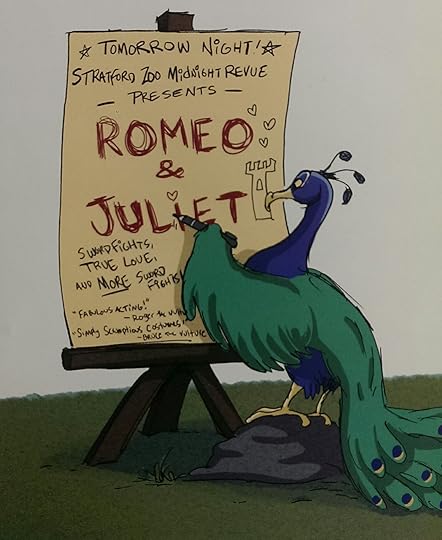 ☆ TOMORROW NIGHT! ☆
STRATFORD ZOO MIDNIGHT REVUE
— PRESENTS —
ROMEO
&
JULIET
SWORDFIGHTS,
TRUE LOVE,
AND MORE SWORD
FIGHTS!
"FABULOUS ACTING!"
- ROGER THE
"SIMPLY SCRUMPTIOUS COSTUMES!"
- BRUCE THE VULTURE